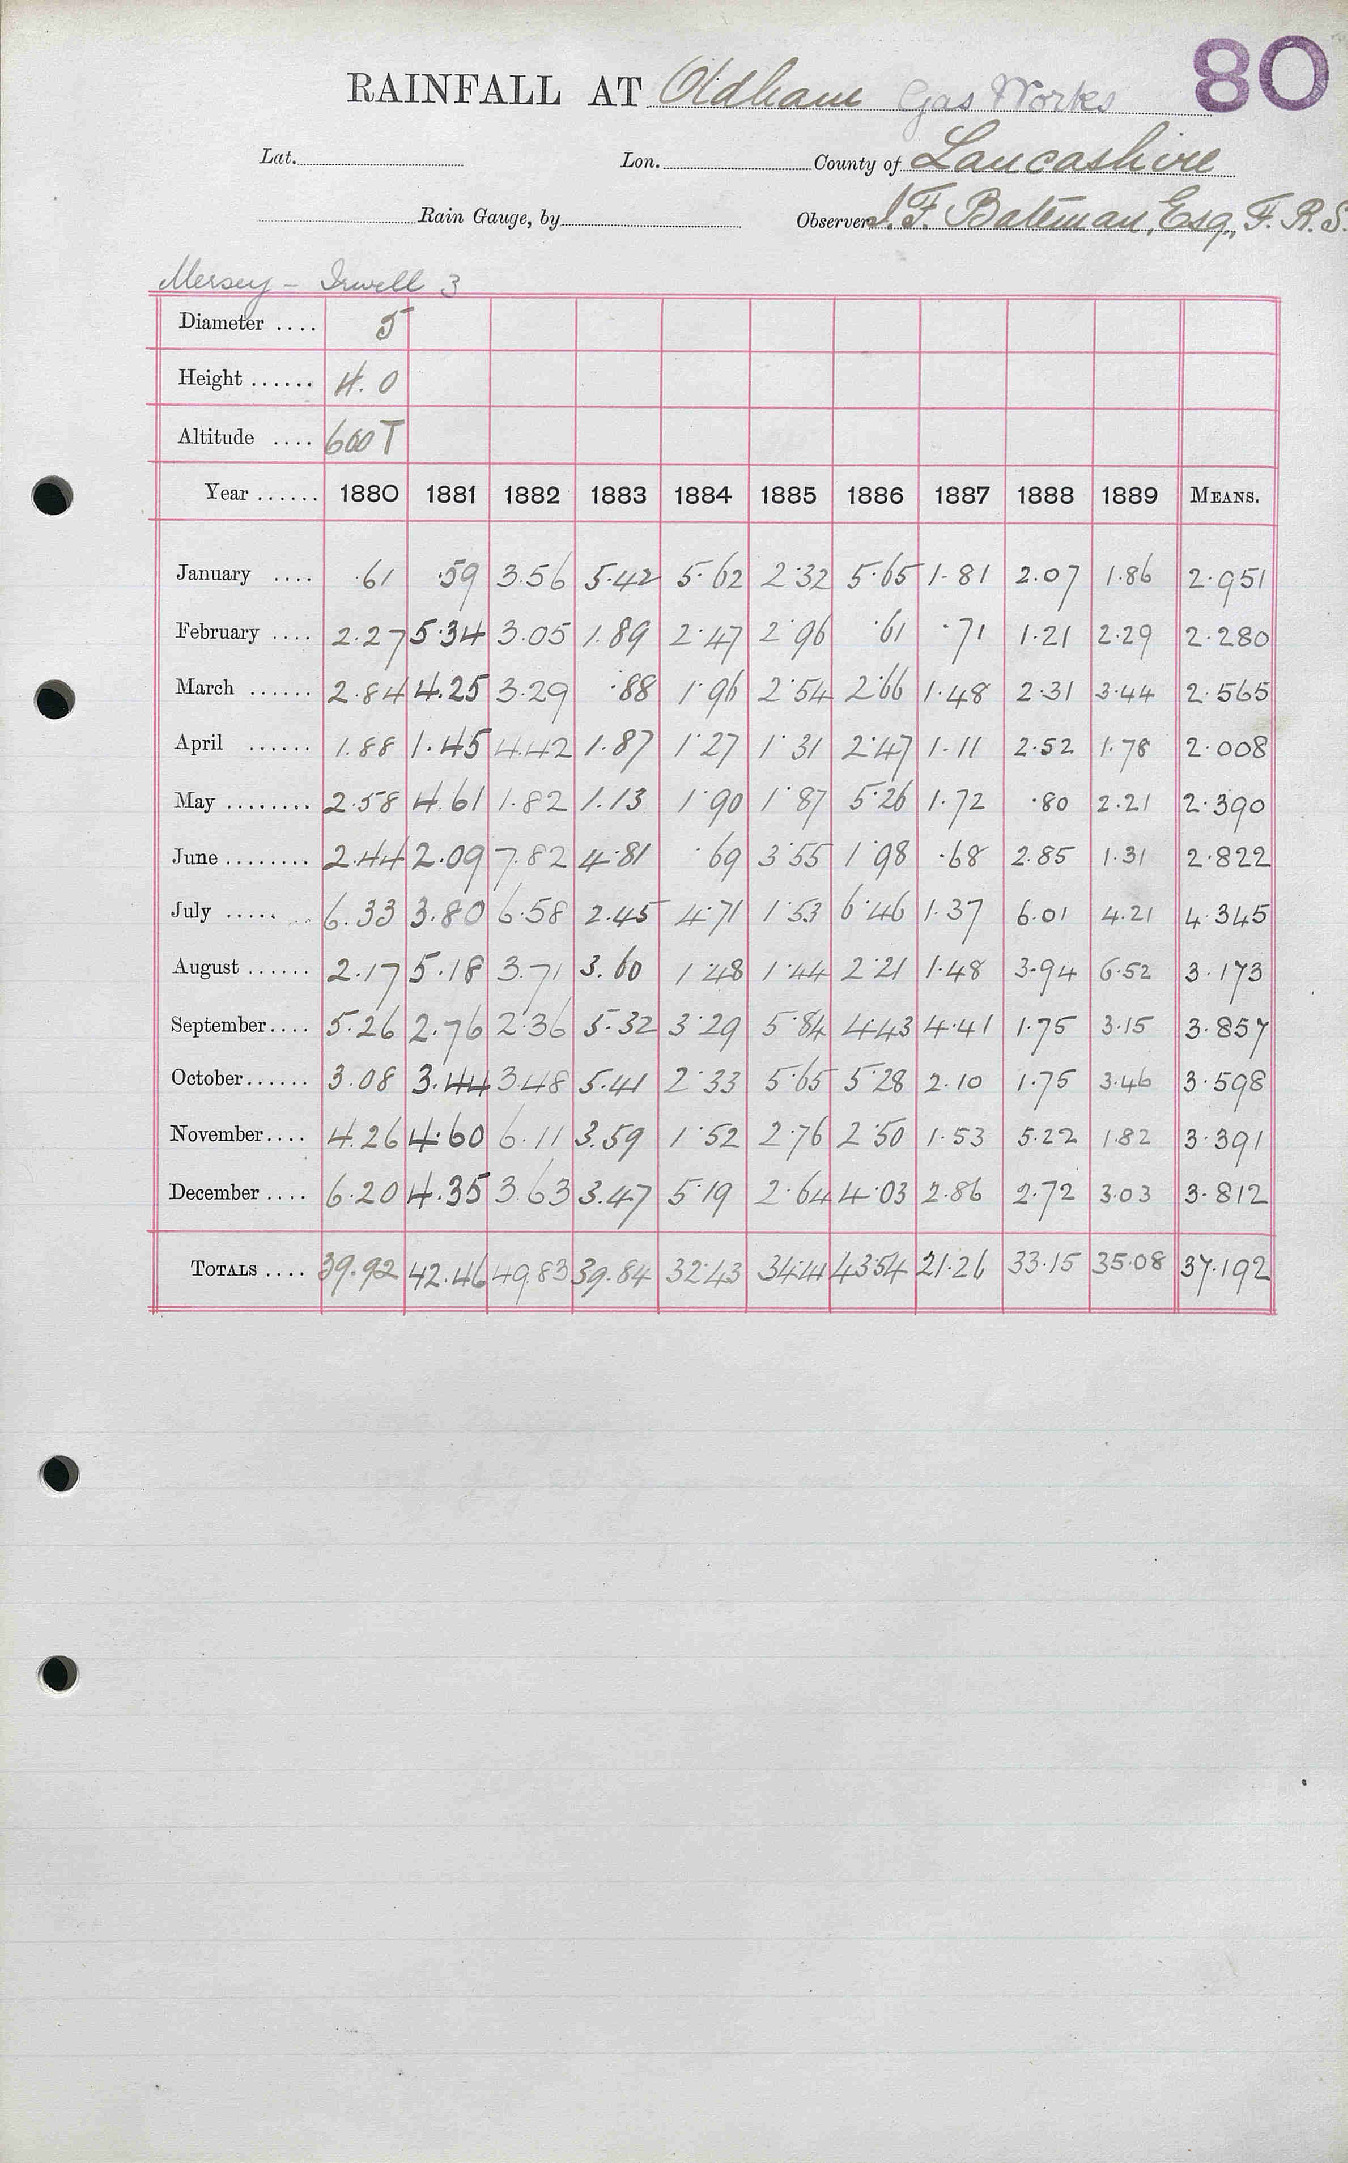 80
RAINFALL AT Oldham Gas Works
Lat. Lon. County of Lancashire
Rain Gauge, by Observer J. F. Bateman, Esq, F. R. S.
Mersey - Irwell 3
Diameter .... 5
Height ...... 4.0
Altitude .... 600 T
Year ...... 1880 1881 1882 1883 1884 1885 1886 1887 1888 1889 MEANS.
January .... .61 .59 3.56 5.42 5.62 2.32 5.65 1.81 2.07 1.86 2.951
February .... 2.27 5.34 3.05 1.89 2.47 2.96 .61 .71 1.21 2.29 2.280
March ...... 2.84 4.25 3.29 .88 1.96 2.54 2.66 1.48 2.31 3.44 2.565
April ...... 1.88 1.45 4.42 1.87 1.27 1.31 2.47 1.11 2.52 1.78 2.008
May ........ 2.58 4.61 1.82 1.13 1.90 1.87 5.26 1.72 .80 2.21 2.390
June ........ 2.44 2.09 7.82 4.81 .69 3.55 1.98 .68 2.85 1.31 2.822
July ........ 6.33 3.80 6.58 2.45 4.71 1.53 6.46 1.37 6.01 4.21 4.345
August ...... 2.17 5.18 3.71 3.60 1.48 1.44 2.21 1.48 3.94 6.52 3.173
September .... 5.26 2.76 2.36 5.32 3.29 5.84 4.43 4.41 1.75 3.15 3.857
October ...... 3.08 3.44 3.48 5.41 2.33 5.65 5.28 2.10 1.75 3.46 3.598
November .... 4.26 4.60 6.11 3.59 1.52 2.76 2.50 1.53 5.22 1.82 3.391
December .... 6.20 4.35 3.63 3.47 5.19 2.64 4.03 2.86 2.72 3.03 3.812
TOTALS .... 39.92 42.46 49.83 39.84 32.43 34.41 43.54 21.26 33.15 35.08 37.192